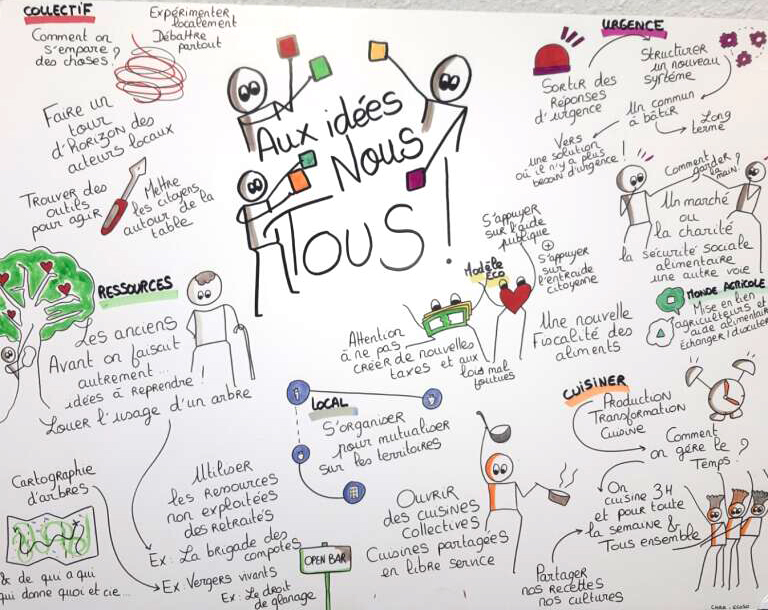 COLLECTIF
Comment on
s'empare ?
des choses
Expérimenter
localement
Débattre
partout
Faire un
tour
d'HORIZON des
acteurs locaux
Trouver des
outils
pour agir
Mettre
les citoyens
autour de la
table
Aux idées
Nous
TOUS !
URGENCE
Sortir des
Réponses
d'urgence
Structurer
un nouveau
système
Un commun
à bâtir
Long
terme
Vers
une solution
où il n'y a plus
besoin d'urgence !
Comment
garder ?
main.
Un marché
ou
la charité
la sécurité sociale
alimentaire
une autre voie
RESSOURCES
Les anciens
Avant on faisait
autrement...
idées à reprendre !
Louer l'usage d'un arbre
Cartographie
d'arbres
& de qui a qui
qui donne quoi et cie...
Utiliser
les Ressources
non exploitées
des retraités
Ex: La brigade des
compotes
Ex: Vergers vivants
Ex: Le droit
de glanage
Modèle
Eco
S'appuyer
sur l'aide
publique
+
S'appuyer
sur
l'entraide
citoyenne
Attention
à ne pas
créer de nouvelles
taxes et aux
lois mal
foutues
Une nouvelle
Fiscalité des
aliments
MONDE AGRICOLE
Mise en lien
agriculteurs et
aide alimentaire
échanger / discuter
LOCAL
S'organiser
pour mutualiser
sur les territoires
OPEN BAR
Ouvrir
des cuisines
collectives
Cuisines partagées
en libre service
CUISINER
Production
Transformation
Cuisine
Comment
on gère le
Temps ?
On
cuisine 3H
et pour toute
la semaine &
Tous ensemble
Partager
nos recettes
nos cultures